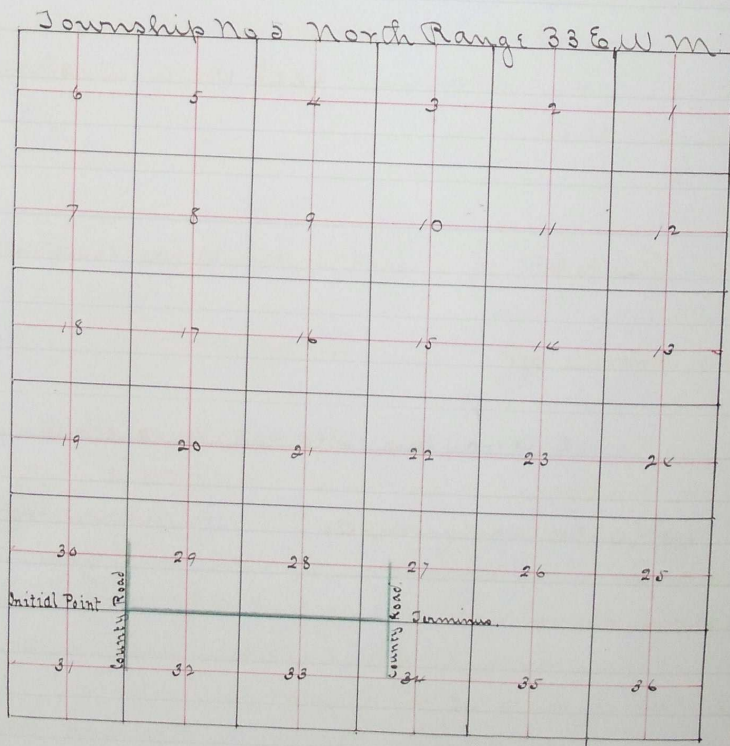 Township No 2 North Range 33 E, W. M.
6 5 4 3 2 1
7 8 9 10 11 12
18 17 16 15 14 13
19 20 21 22 23 24
30 29 28 27 26 25
Initial Point
County Road
County Road.
Terminus.
31 32 33 34 35 36